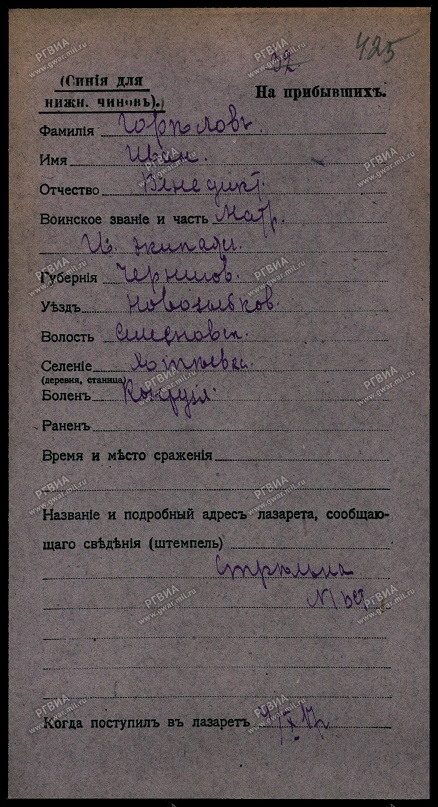 425
32
(Синія для
нижн. чиновъ).)
На прибывшихъ.
Фамилія Горпловъ.
Имя Иван.
Отчество Венедикт.
Воинское званіе и часть Матр.
Губернія Чернигов.
Уѣздъ Новозыбков.
Волость Семеновск.
Селеніе
(деревня, станица)
Боленъ
Раненъ
Время и мѣсто сраженія
Названіе и подробный адресъ лазарета, сообщаю-
щаго свѣдѣнія (штемпель)
Стрѣльна
Когда поступилъ въ лазаретъ
РГВИА
www.gwar.mil.ru